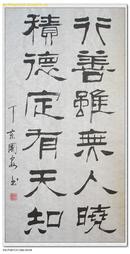 行善雖無人曉
積德定有天知
丁亥
書